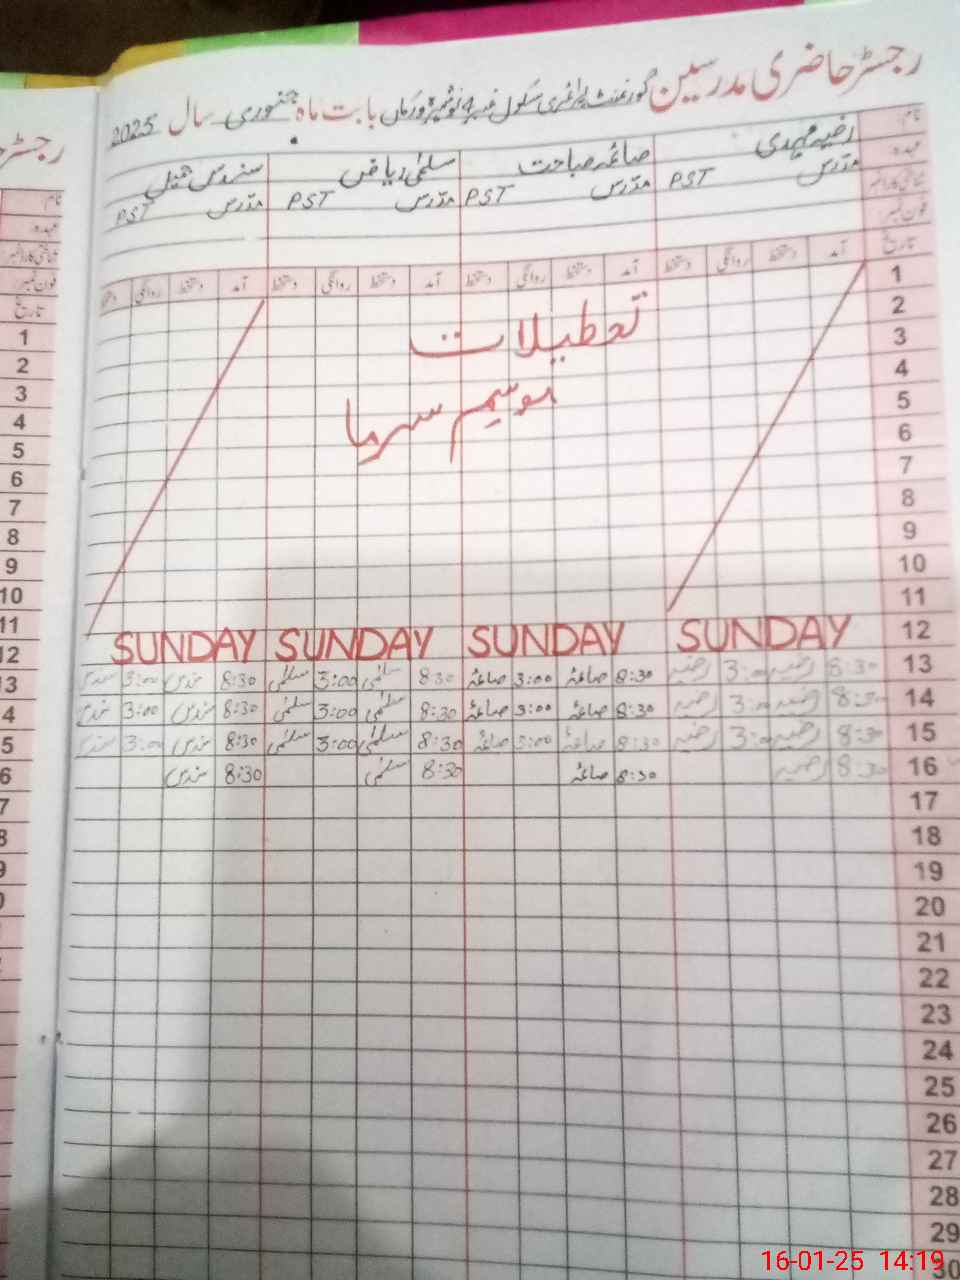 رجسٹر حاضری مدرسین گورنمنٹ پرائمری سکول نمبر 4 نوشہرہ ورکاں بابت ماہ جنوری سال 2025
نام رضیہ مہدی صائمہ صباحت سلمیٰ ریاض سندس جمیل
عہدہ مدرس PST مدرس PST مدرس PST مدرس PST
شناختی کارڈ نمبر
فون نمبر
تاریخ آمد دستخط روانگی دستخط آمد دستخط روانگی دستخط آمد دستخط روانگی دستخط آمد دستخط روانگی دستخط
1
2
تعطیلات
3
4
موسم سرما
5
6
7
8
9
10
11
12 SUNDAY SUNDAY SUNDAY SUNDAY
13 8:30 رضیہ 3:00 رضیہ 8:30 صائمہ 3:00 صائمہ 8:30 سلمیٰ 3:00 سلمیٰ 8:30 سندس 3:00 سندس
14 8:30 رضیہ 3:00 رضیہ 8:30 صائمہ 3:00 صائمہ 8:30 سلمیٰ 3:00 سلمیٰ 8:30 سندس 3:00 سندس
15 8:30 رضیہ 3:00 رضیہ 8:30 صائمہ 3:00 صائمہ 8:30 سلمیٰ 3:00 سلمیٰ 8:30 سندس 3:00 سندس
16 8:30 رضیہ 8:30 صائمہ 8:30 سلمیٰ 8:30 سندس
17
18
19
20
21
22
23
24
25
26
27
28
29
30
رجسٹر
نام
عہدہ
شناختی کارڈ نمبر
فون نمبر
تاریخ
1
2
3
4
5
6
7
8
9
10
11
12
3
4
5
6
7
8
9
16-01-25 14:19